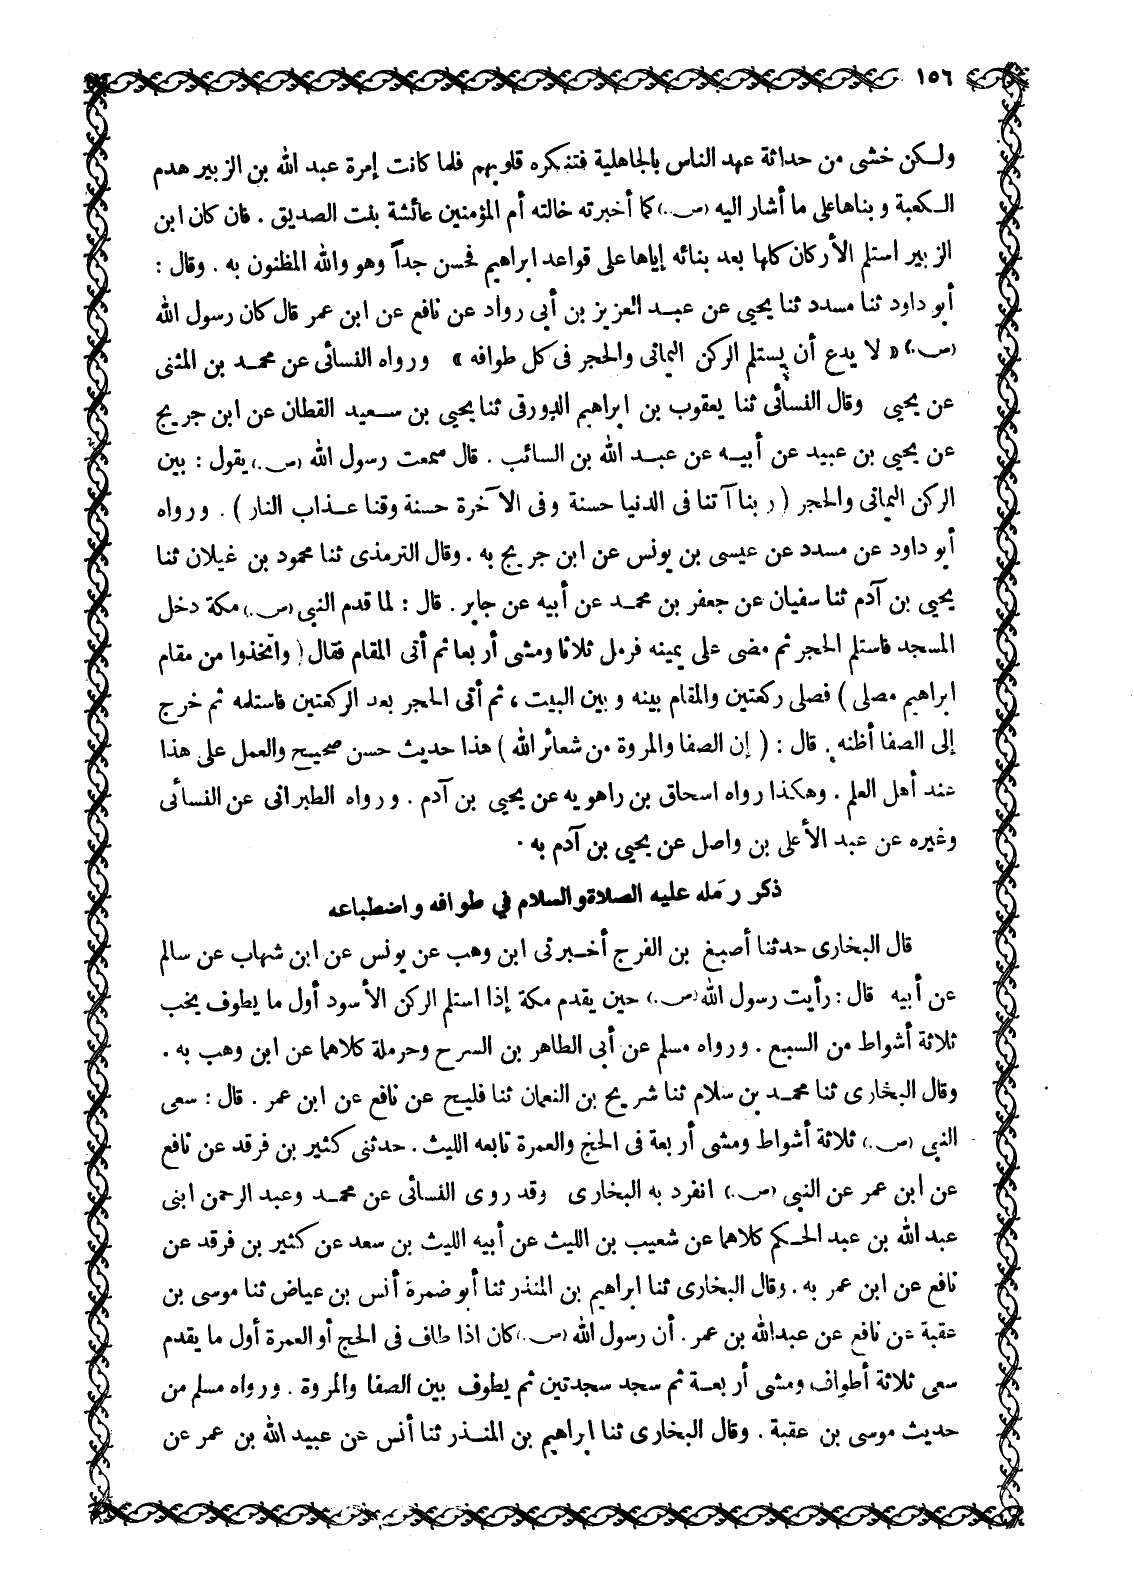 ١٥٦
ولكن خشى من حداثة عهد الناس بالجاهلية فتنكره قلوبهم فلما كانت إمرة عبد الله بن الزبير هدم
الكعبة وبناها على ما أشار اليه (ص.) كما أخبرته خالته أم المؤمنين عائشة بنت الصديق . فان كان ابن
الزبير استلم الأركان كلها بعد بنائه إياها على قواعد ابراهيم فحسن جداً وهو والله المظنون به . وقال :
أبو داود ثنا مسدد ثنا يحيى عن عبد العزيز بن أبى رواد عن نافع عن ابن عمر قال كان رسول الله
(ص.) « لا يدع أن يستلم الركن اليمانى والحجر فى كل طوافه » ورواه النسائى عن محمد بن المثنى
عن يحيى وقال النسائى ثنا يعقوب بن ابراهيم الدورقى ثنا يحيى بن سعيد القطان عن ابن جريج
عن يحيى بن عبيد عن أبيه عن عبد الله بن السائب . قال سمعت رسول الله (ص.) يقول : بين
الركن اليمانى والحجر ( ربنا آتنا فى الدنيا حسنة وفى الآخرة حسنة وقنا عذاب النار ) . ورواه
أبو داود عن مسدد عن عيسى بن يونس عن ابن جريج به . وقال الترمذى ثنا محمود بن غيلان ثنا
يحيى بن آدم ثنا سفيان عن جعفر بن محمد عن أبيه عن جابر . قال : لما قدم النبى (ص.) مكة دخل
المسجد فاستلم الحجر ثم مضى على يمينه فرمل ثلاثا ومشى أربعا ثم أتى المقام فقال ( واتخذوا من مقام
ابراهيم مصلى ) فصلى ركعتين والمقام بينه وبين البيت ، ثم أتى الحجر بعد الركعتين فاستلمه ثم خرج
إلى الصفا أظنه . قال : ( إن الصفا والمروة من شعائر الله ) هذا حديث حسن صحيح والعمل على هذا
عند أهل العلم . وهكذا رواه اسحاق بن راهويه عن يحيى بن آدم . ورواه الطبرانى عن النسائى
وغيره عن عبد الأعلى بن واصل عن يحيى بن آدم به .
ذكر رَمله عليه الصلاة والسلام في طوافه واضطباعه
قال البخارى حدثنا أصبغ بن الفرج أخبرنى ابن وهب عن يونس عن ابن شهاب عن سالم
عن أبيه قال : رأيت رسول الله (ص.) حين يقدم مكة إذا استلم الركن الأسود أول ما يطوف يخب
ثلاثة أشواط من السبع . ورواه مسلم عن أبى الطاهر بن السرح وحرملة كلاهما عن ابن وهب به .
وقال البخارى ثنا محمد بن سلام ثنا شريح بن النعمان ثنا فليح عن نافع عن ابن عمر . قال : سعى
النبى (ص.) ثلاثة أشواط ومشى أربعة فى الحج والعمرة تابعه الليث . حدثنى كثير بن فرقد عن نافع
عن ابن عمر عن النبى (ص.) انفرد به البخارى وقد روى النسائى عن محمد وعبد الرحمن ابنى
عبد الله بن عبد الحكم كلاهما عن شعيب بن الليث عن أبيه الليث بن سعد عن كثير بن فرقد عن
نافع عن ابن عمر به . وقال البخارى ثنا ابراهيم بن المنذر ثنا أبو ضمرة أنس بن عياض ثنا موسى بن
عقبة عن نافع عن عبد الله بن عمر . أن رسول الله (ص.) كان اذا طاف فى الحج أو العمرة أول ما يقدم
سعى ثلاثة أطواف ومشى أربعة ثم سجد سجدتين ثم يطوف بين الصفا والمروة . ورواه مسلم من
حديث موسى بن عقبة . وقال البخارى ثنا ابراهيم بن المنذر ثنا أنس عن عبيد الله بن عمر عن